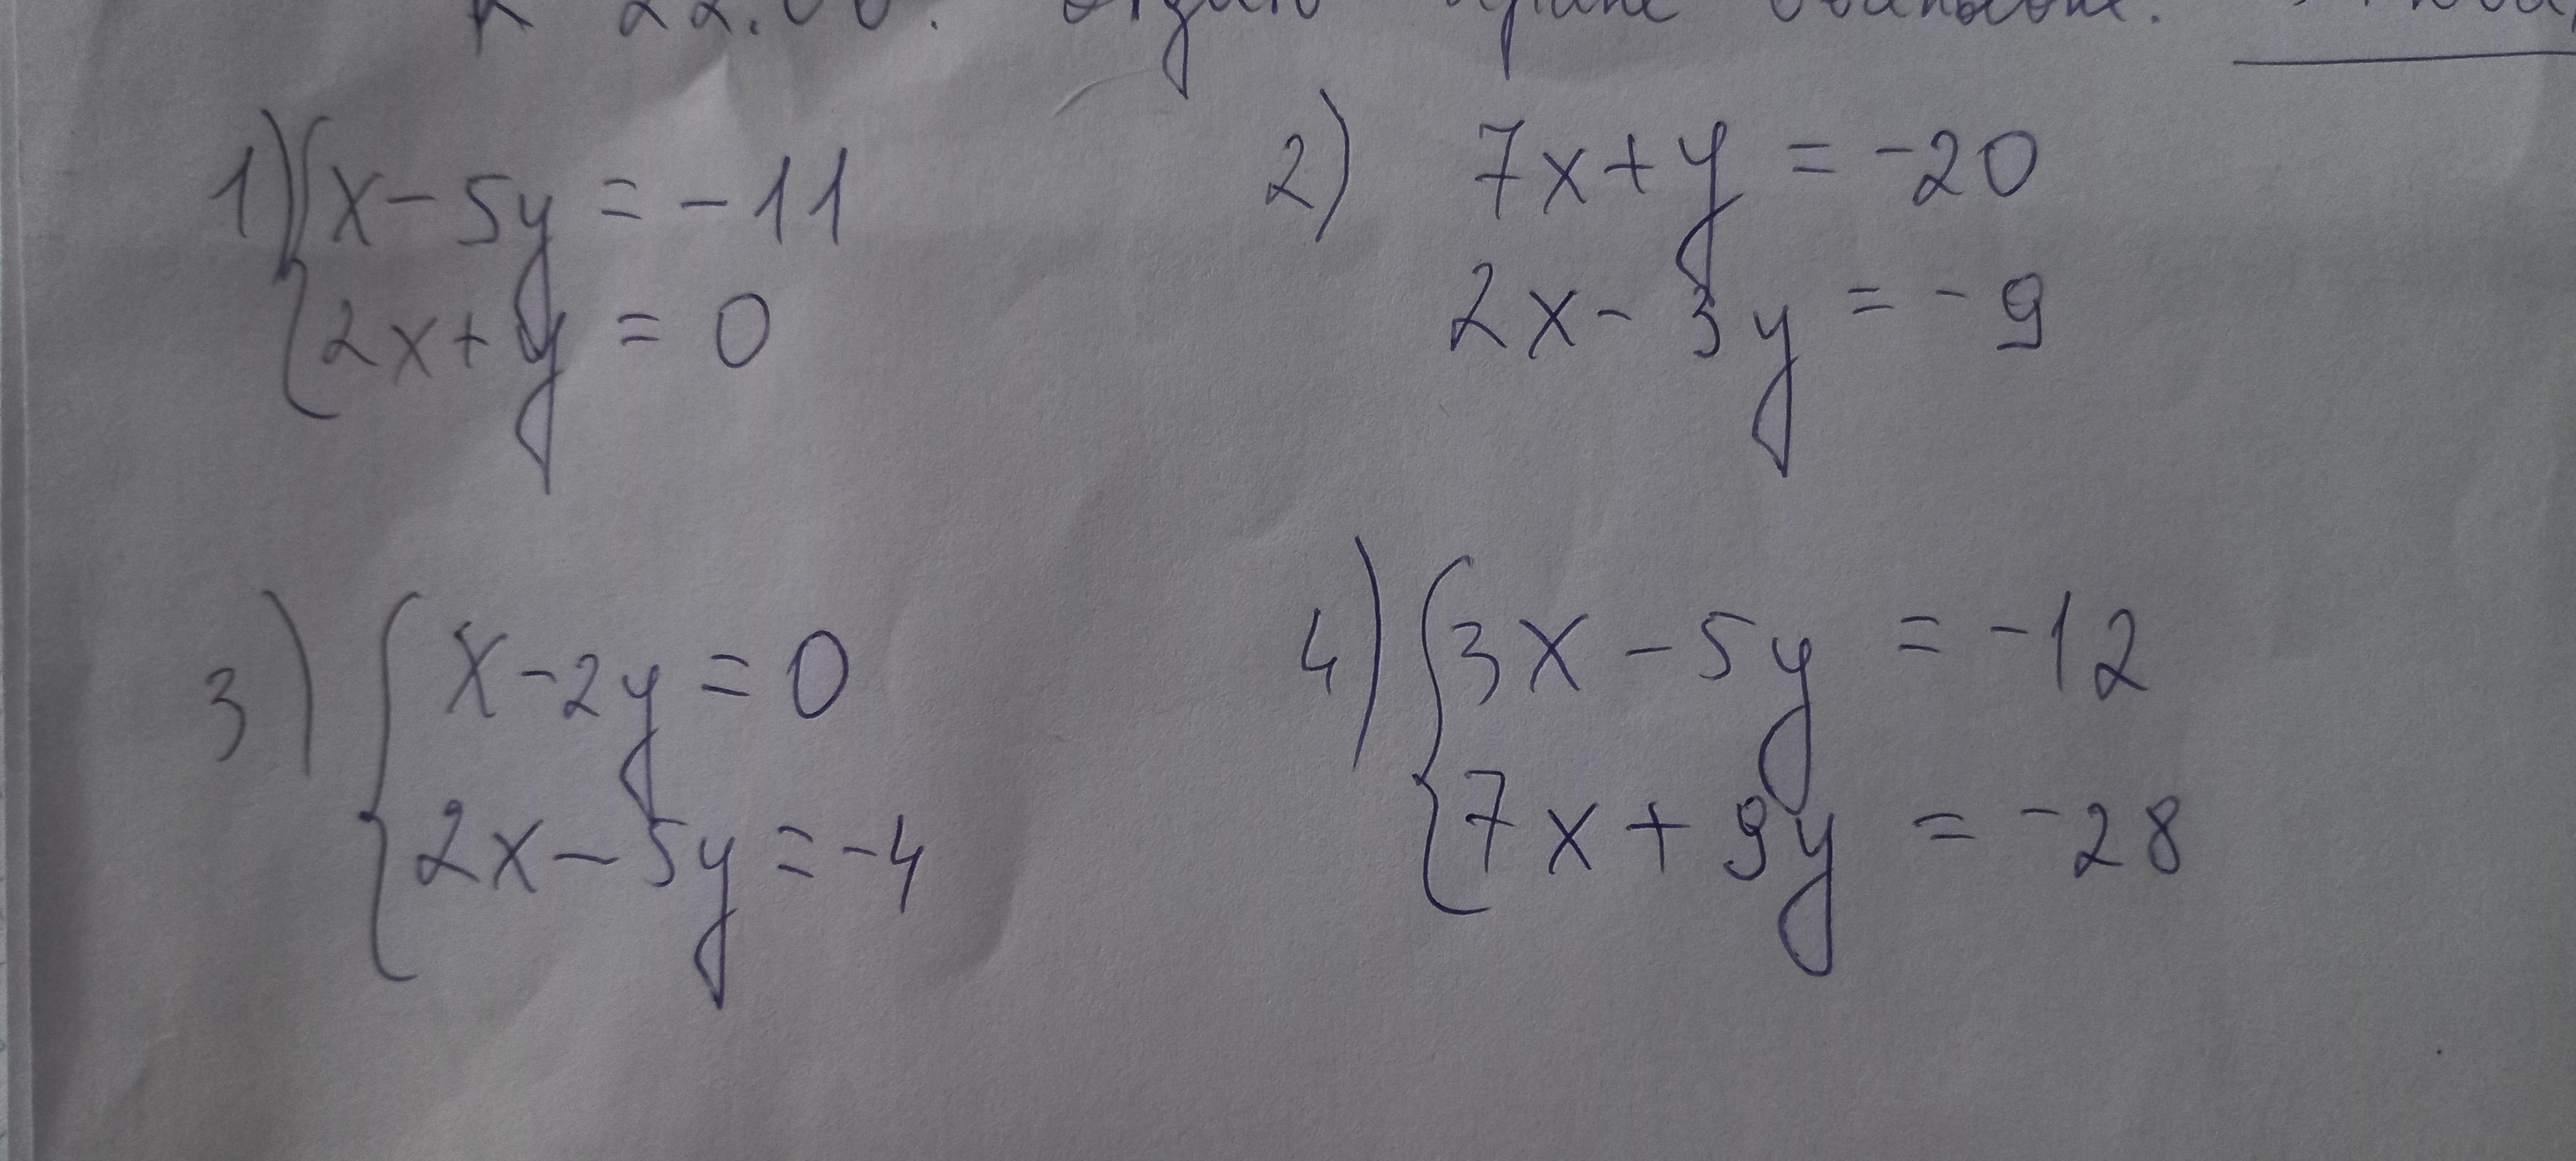 к 22.00.
1) x - 5y = -11
2x + y = 0
2) 7x + y = -20
2x - 3y = -9
3) x - 2y = 0
2x - 5y = -4
4) 3x - 5y = -12
7x + 9y = -28